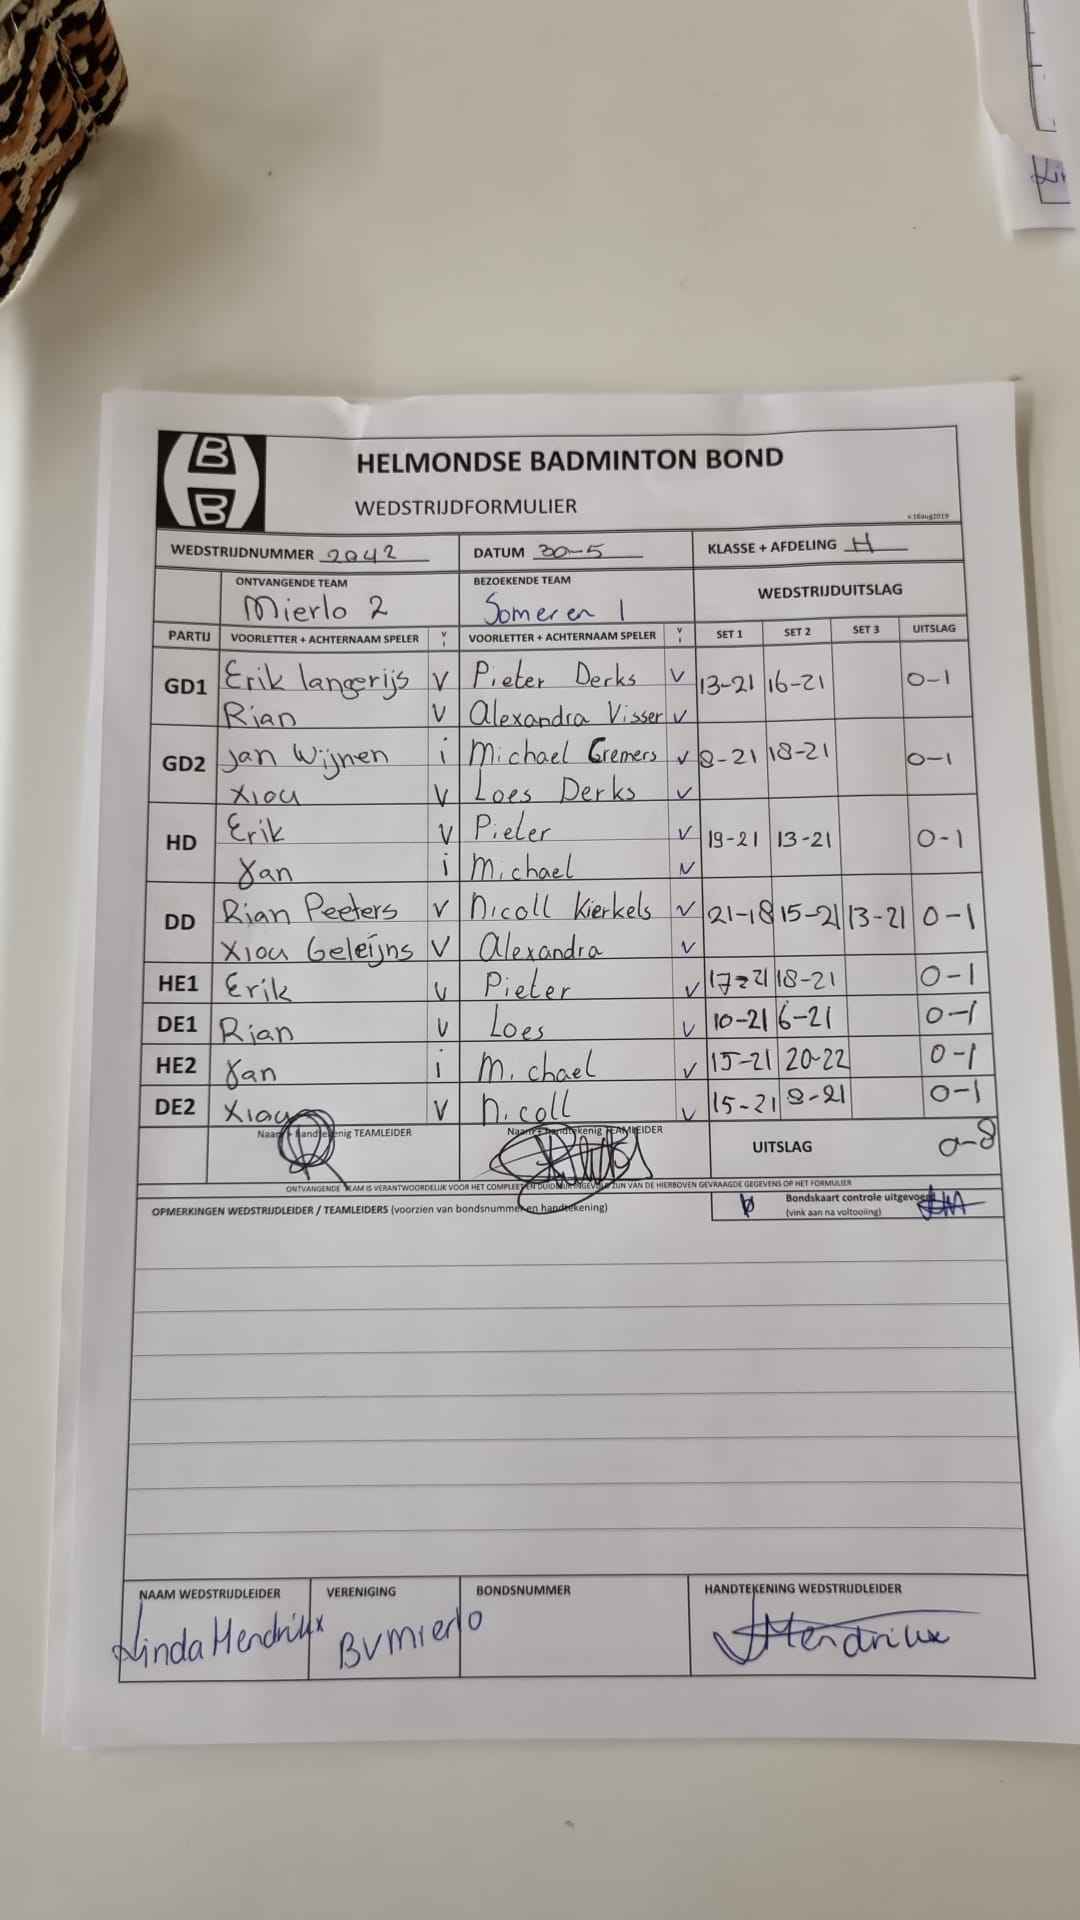 B
B
HELMONDSE BADMINTON BOND
WEDSTRIJDFORMULIER
v.16aug2019
WEDSTRIJDNUMMER 2042 DATUM 30-5 KLASSE + AFDELING H
ONTVANGENDE TEAM BEZOEKENDE TEAM WEDSTRIJDUITSLAG
Mierlo 2 Someren 1
PARTIJ VOORLETTER + ACHTERNAAM SPELER V I VOORLETTER + ACHTERNAAM SPELER V I SET 1 SET 2 SET 3 UITSLAG
GD1 Erik Langerijs V Pieter Derks V 13-21 16-21 0-1
Rian V Alexandra Visser V
GD2 Jan Wijnen i Michael Cremers V 8-21 18-21 0-1
Xiou V Loes Derks V
HD Erik V Pieter V 19-21 13-21 0-1
Jan i Michael V
DD Rian Peeters V Nicoll Kierkels V 21-18 15-21 13-21 0-1
Xiou Geleijns V Alexandra V
HE1 Erik V Pieter V 17-21 18-21 0-1
DE1 Rian V Loes V 10-21 6-21 0-1
HE2 Jan i Michael V 15-21 20-22 0-1
DE2 Xiou V Nicoll V 15-21 8-21 0-1
Naam + handtekenig TEAMLEIDER Naam + handtekenig TEAMLEIDER UITSLAG 0-8
ONTVANGENDE TEAM IS VERANTWOORDELIJK VOOR HET COMPLEET EN DUIDELIJK INGEVULD ZIJN VAN DE HIERBOVEN GEVRAAGDE GEGEVENS OP HET FORMULIER
OPMERKINGEN WEDSTRIJDLEIDER / TEAMLEIDERS (voorzien van bondsnummer en handtekening) Bondskaart controle uitgevoerd
(vink aan na voltooiing)
NAAM WEDSTRIJDLEIDER VERENIGING BONDSNUMMER HANDTEKENING WEDSTRIJDLEIDER
Linda Hendriux BVMierlo Hendriux